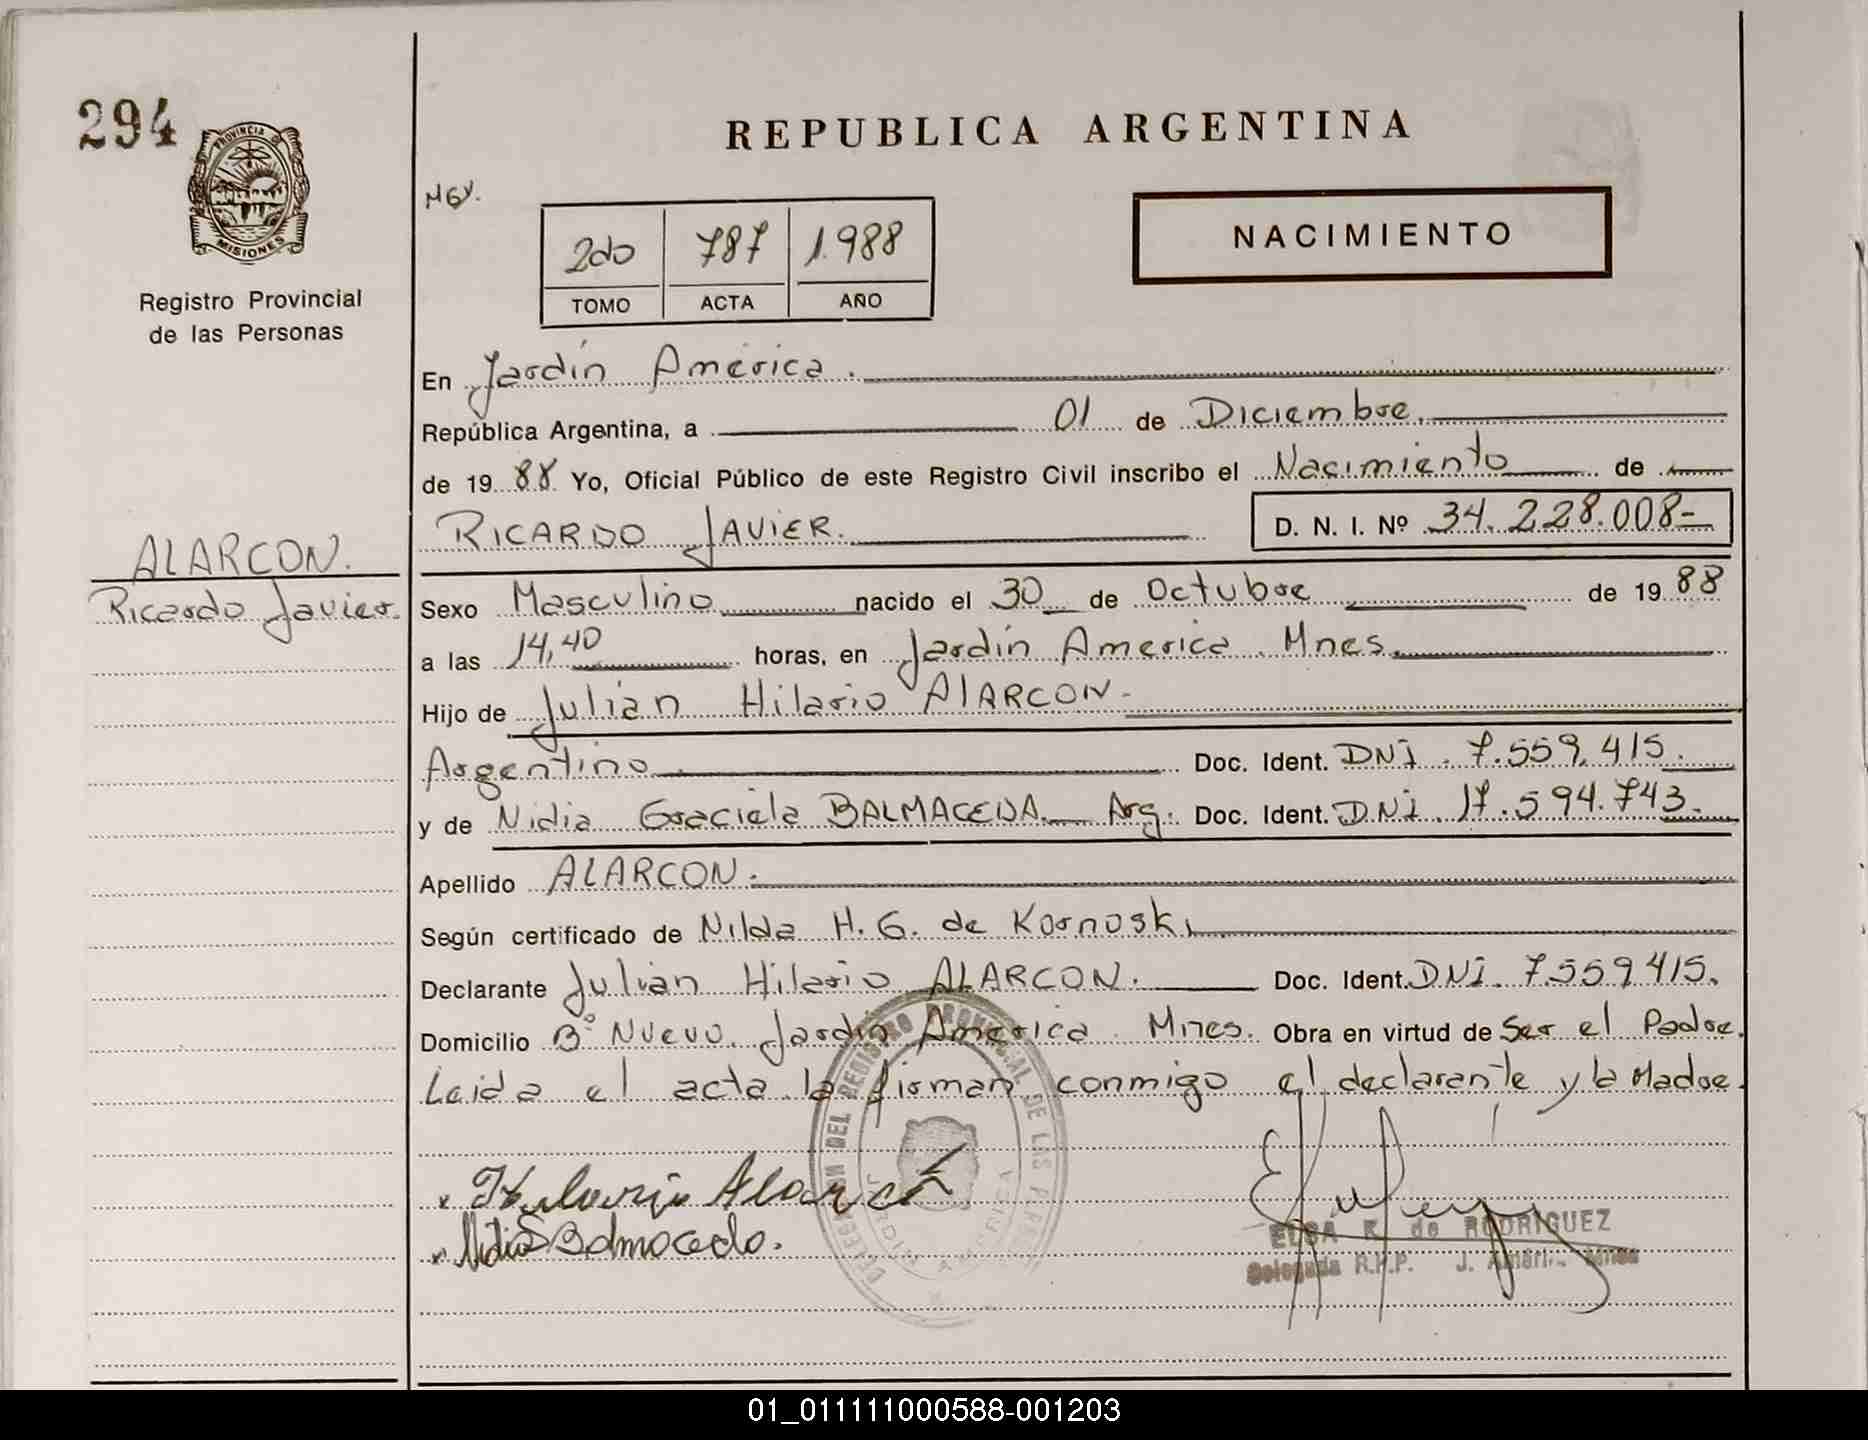 294
PROVINCIA DE
MISIONES
Registro Provincial
de las Personas
ALARCON.
Ricardo Javier.
REPUBLICA ARGENTINA
MGY.
2do 787 1.988
TOMO ACTA AÑO
NACIMIENTO
En Jardín América.
República Argentina, a 01 de Diciembre.
de 19 88 Yo, Oficial Público de este Registro Civil inscribo el Nacimiento de
RICARDO JAVIER. D. N. I. Nº 34.228.008-
Sexo Masculino nacido el 30 de Octubre de 19 88
a las 14,40 horas, en Jardín America. Mnes.
Hijo de Julián Hilario AlARCON-
Argentino Doc. Ident. DNI. 7.559.415.
y de Nidia Graciela BALMACEDA. Arg. Doc. Ident. DNI. 17.594.743.
Apellido ALARCON.
Según certificado de Nilda H. G. de Kornoski
Declarante Julián Hilario ALARCON. Doc. Ident. DNI. 7.559.415.
Domicilio Bº Nuevo. Jardín América. Mnes. Obra en virtud de Ser el Padre.
Leida el acta la firman conmigo el declarante y la Madre.
x Hilario Alarcon
x Nidia G Balmaceda.
DELEGACION DEL REGISTRO PROVINCIAL DE LAS PERSONAS
JARDIN AMERICA
ELSA R. de RODRIGUEZ
Delegada R.P.P. J. América Mnes
01_011111000588-001203